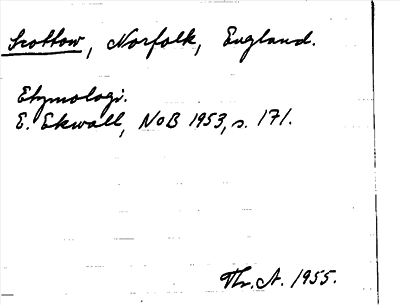 Scottow, Norfolk, England.
Etymologi.
E. Ekwall, NoB 1953, s. 171.
Th. A. 1955.